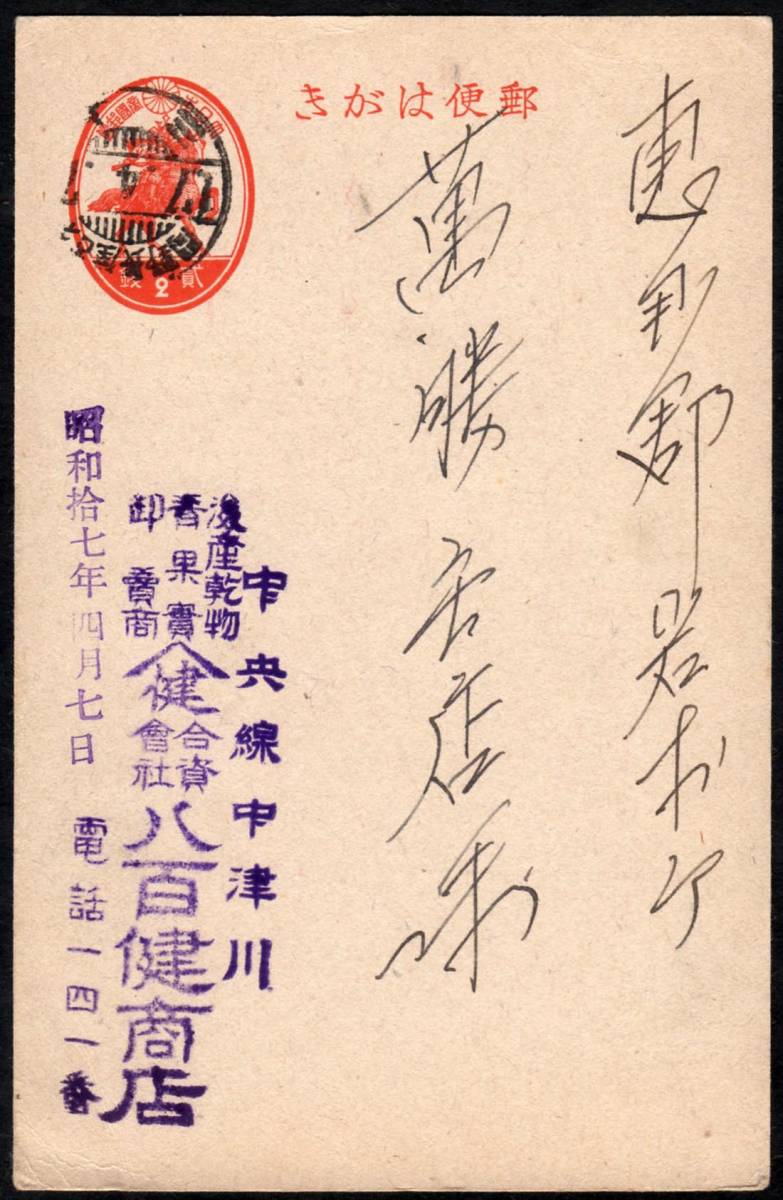 郵便はがき
恵那郡岩村町
萬勝商店様
貳2銭
17.4.7
中央線中津川
海産乾物
青果實
卸賣商
健
合資會社
八百健商店
昭和拾七年四月七日 電話一四一番